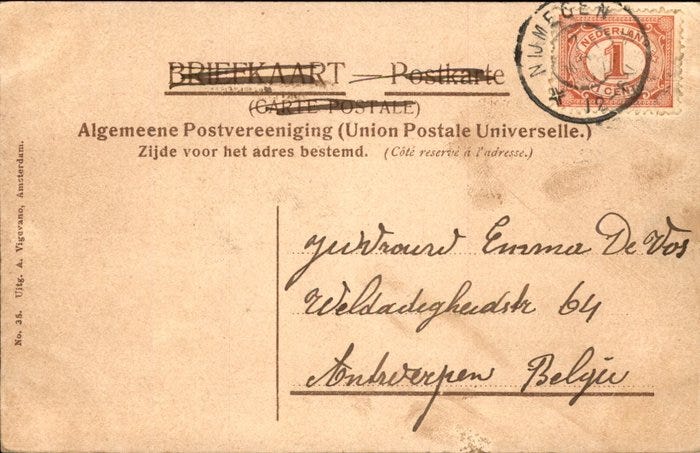 BRIEFKAART — Postkarte
(CARTE POSTALE)
Algemeene Postvereeniging (Union Postale Universelle.)
Zijde voor het adres bestemd. (Côté reservé à l'adresse.)
NIJMEGEN
12
NEDERLAND
1
CENT
Jufvrouw Emma De Vos
Weldadigheidstr 64
Antwerpen Belgie
No. 35. Uitg. A. Vigevano, Amsterdam.